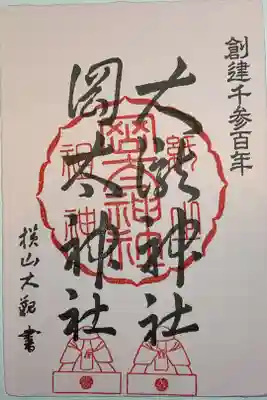 創建千参百年
大瀧神社
岡太神社
横山大観書